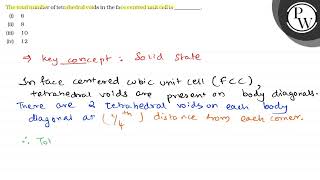 The total number of tetrahedral voids in the face centred unit cell is
(i) 6
(ii) 8
(iii) 10
(iv) 12
PW
⇒ key concept : Solid State
In face centered cubic unit cell (FCC),
tetrahedral voids are present on body diagonals.
There are 2 tetrahedral voids on each body
diagonal at (1/4 th) distance from each corner.
∴ Tot